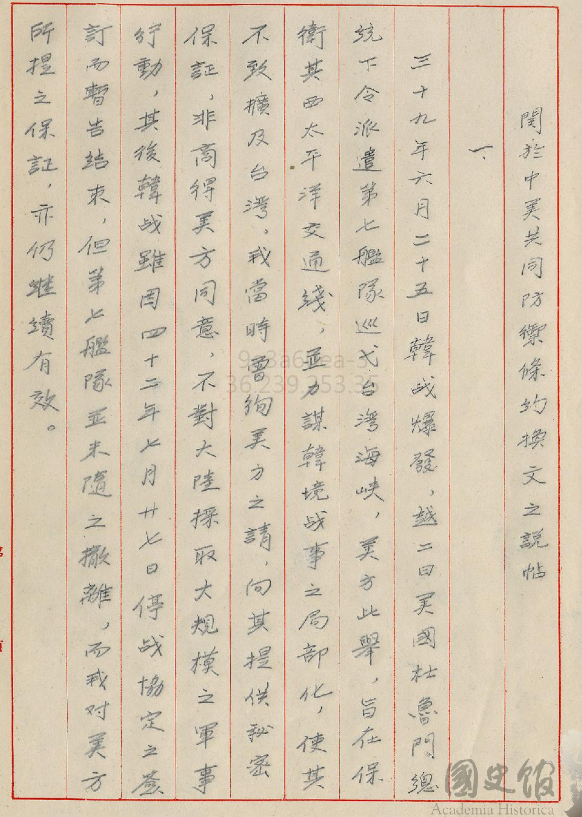 關於中美共同防禦條約換文之說帖
一、
三十九年六月二十五日韓战爆發，越二日美國杜魯門總
統下令派遣第七艦隊巡弋台灣海峽，美方此舉，旨在保
衛其西太平洋交通綫，並力謀韓境战事之局部化，使其
不致擴及台灣。我當時曾徇美方之請，向其提供秘密
保証，非商得美方同意，不對大陸採取大規模之軍事
行動，其後韓战雖因四十二年七月廿七日停战協定之簽
訂而暫告結束，但第七艦隊並未隨之撤離，而我对美方
所提之保証，亦仍继續有效。
國史館
Academia Historica